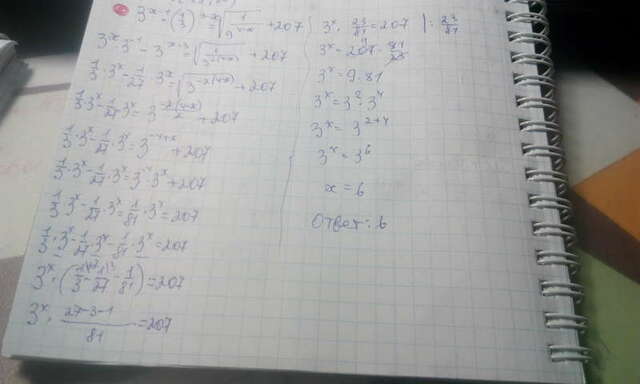 3^{x-1} - (1/3)^{3-x} = √(1/9^{4-x}) + 207
3^x · 3^{-1} - 3^{x-3} = √(1/3^{2(4-x)}) + 207
1/3 · 3^x - 1/27 · 3^x = √(3^{-2(4-x)}) + 207
1/3 · 3^x - 1/27 · 3^x = 3^{-2(4-x)/2} + 207
1/3 · 3^x - 1/27 · 3^x = 3^{-4+x} + 207
1/3 · 3^x - 1/27 · 3^x = 3^{-4} · 3^x + 207
1/3 · 3^x - 1/27 · 3^x = 1/81 · 3^x = 207
1/3 · 3^x - 1/27 · 3^x - 1/81 · 3^x = 207
3^x · (1/3 - 1/27 - 1/81) = 207
3^x · (27-3-1)/81 = 207
3^x · 23/81 = 207 | : 23/81
3^x = 207 · 81/23
3^x = 9 · 81
3^x = 3^2 · 3^4
3^x = 3^{2+4}
3^x = 3^6
x = 6
Ответ: 6